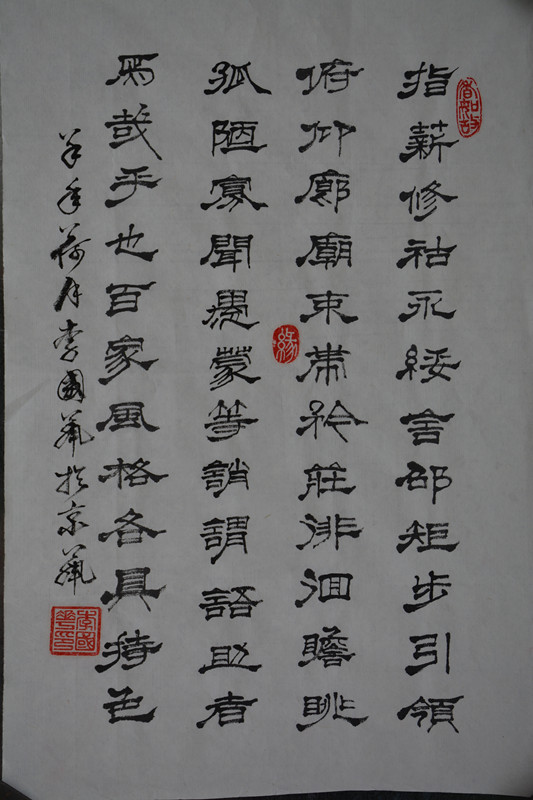 指薪修祜永綏吉邵矩步引領
俯仰廊廟束帶矜莊徘徊瞻眺
緣
孤陋寡聞愚蒙等誚謂語助者
焉哉乎也百家風格各具特色
羊年荷月李國華於京華
李國華印